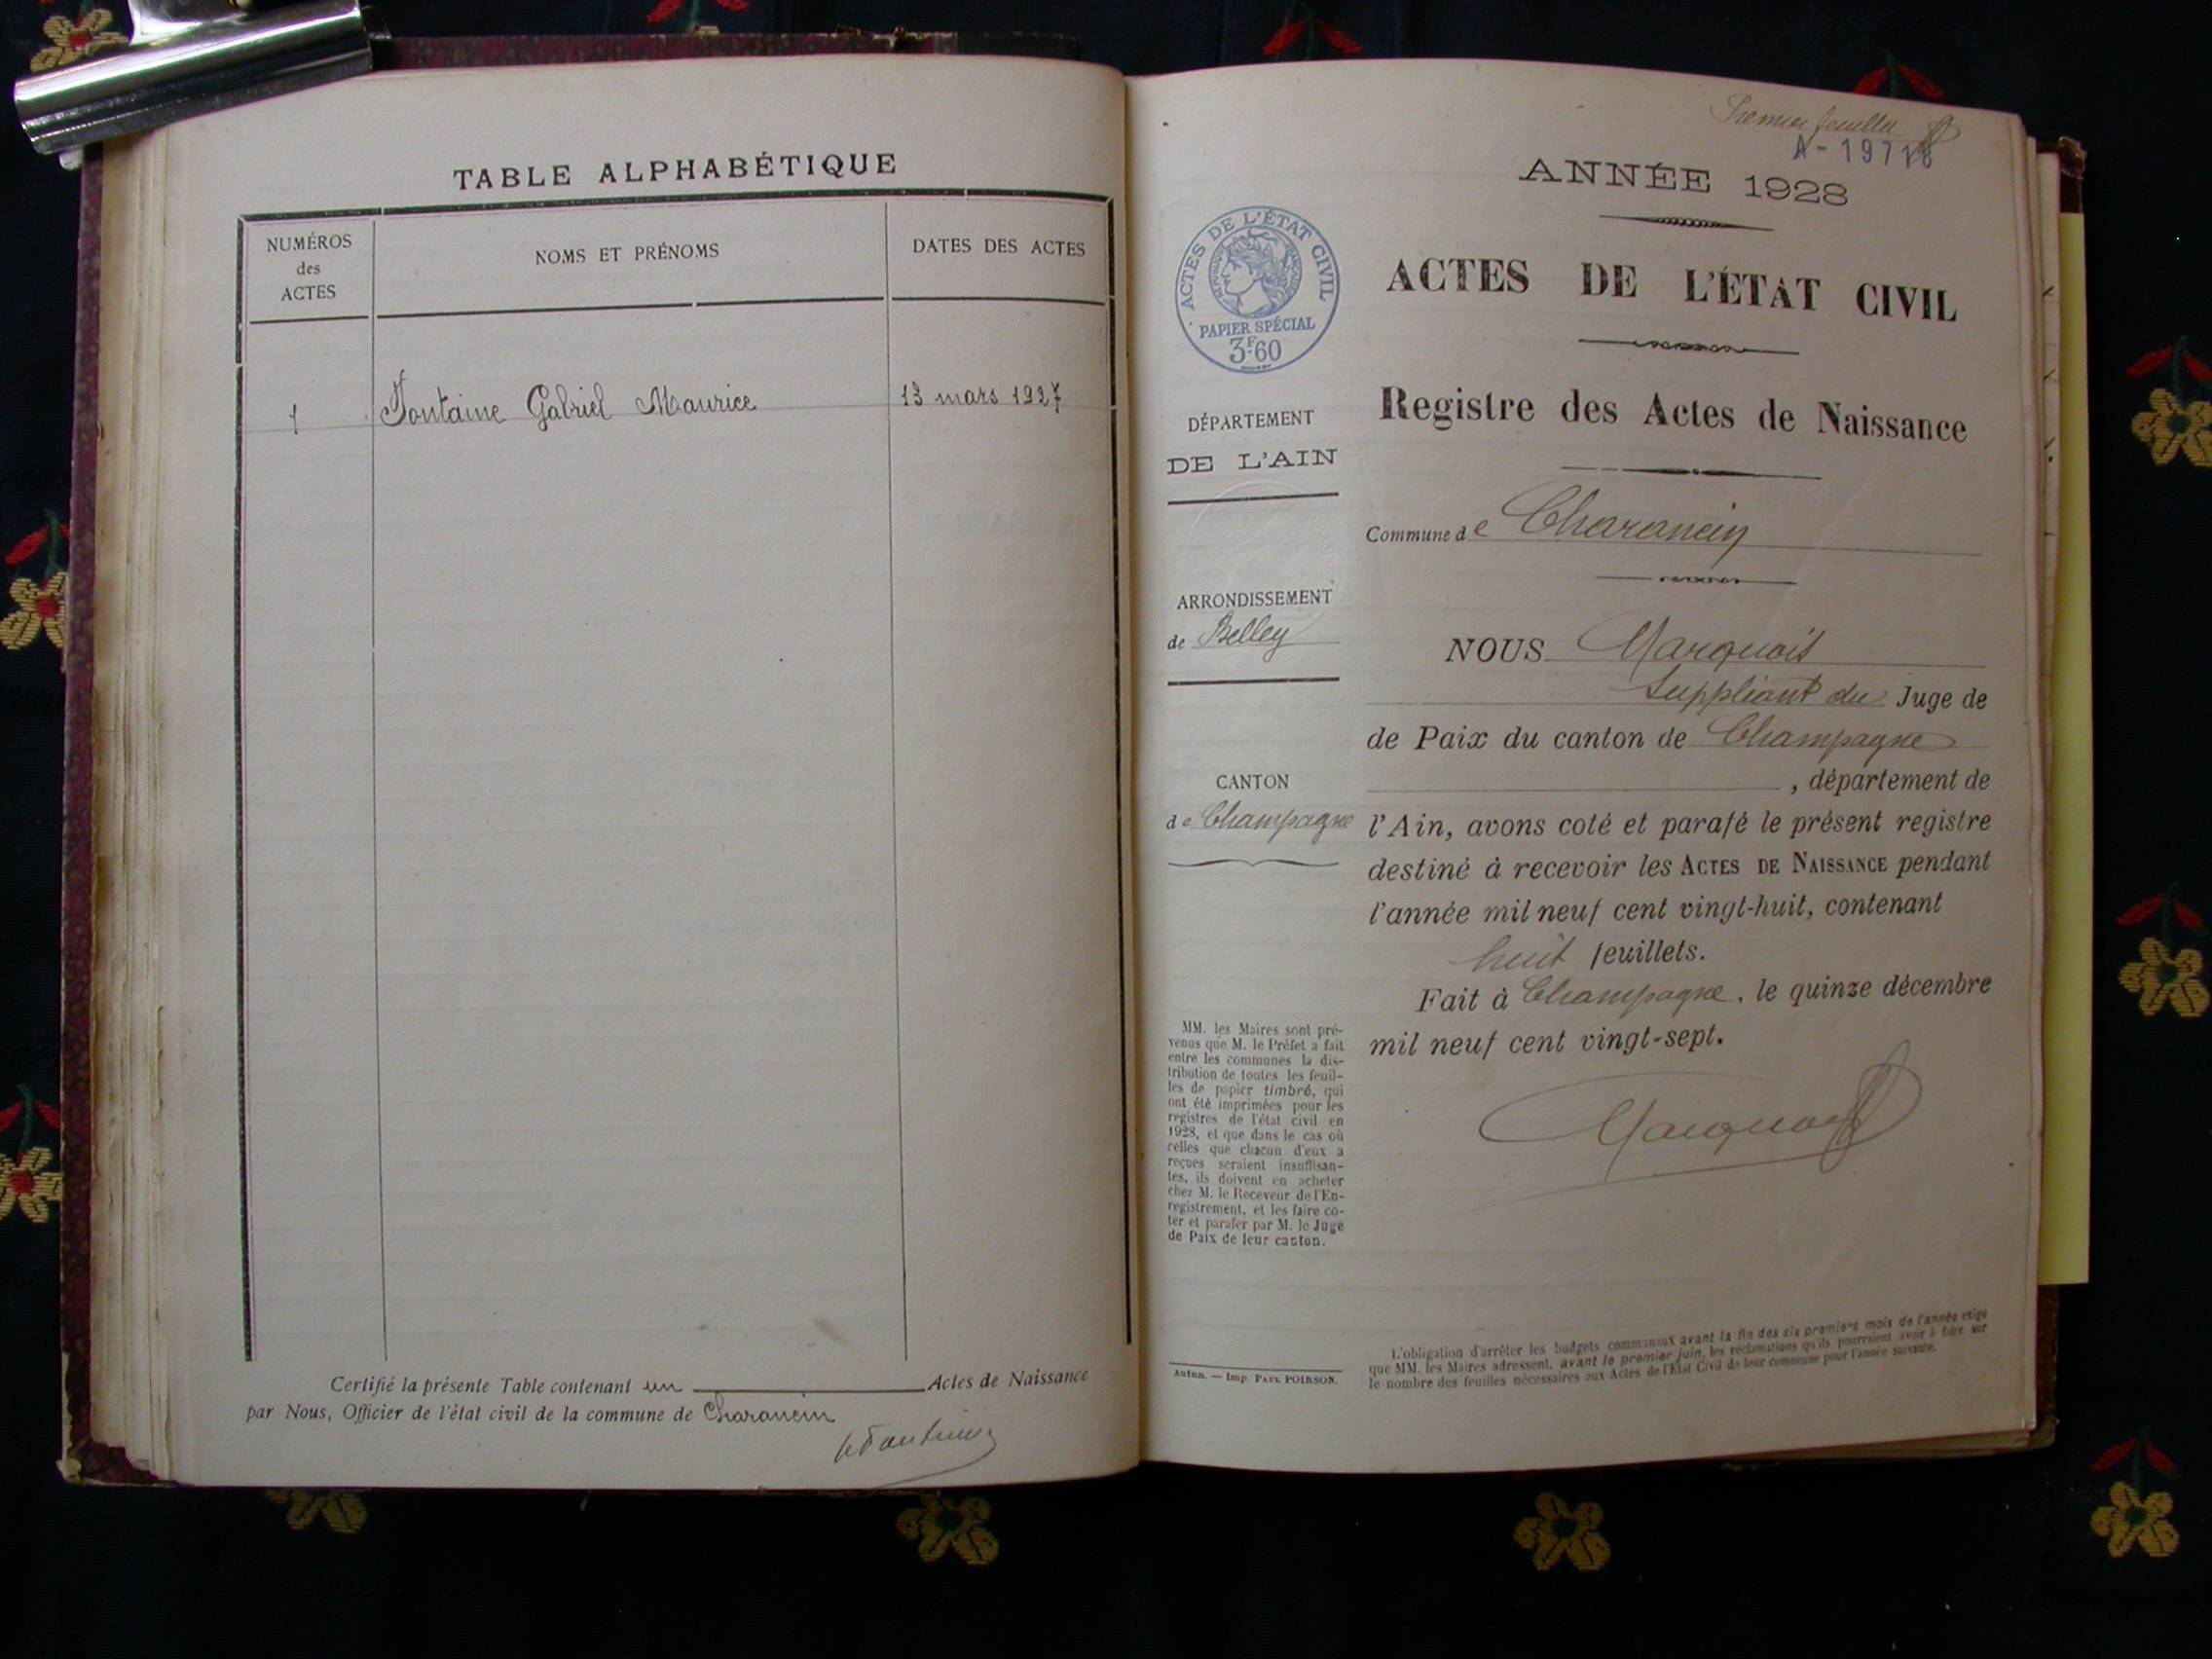 TABLE ALPHABÉTIQUE
NUMÉROS
des
ACTES
NOMS ET PRÉNOMS
DATES DES ACTES
1 Fontaine Gabriel Maurice 13 mars 1927
Certifié la présente Table contenant un Actes de Naissance
par Nous, Officier de l'état civil de la commune de Charancin
Premier feuillet
A-19718
ANNÉE 1928
ACTES DE L'ÉTAT CIVIL
RÉPUBLIQUE FRANÇAISE
PAPIER SPÉCIAL
3F-60
ACTES DE L'ÉTAT CIVIL
Registre des Actes de Naissance
DÉPARTEMENT
DE L'AIN
Commune de Charancin
ARRONDISSEMENT
de Belley
NOUS Marquois
Suppléant du Juge de
de Paix du canton de Champagne
, département de
CANTON
de Champagne
l'Ain, avons coté et parafé le présent registre
destiné à recevoir les ACTES DE NAISSANCE pendant
l'année mil neuf cent vingt-huit, contenant
huit feuillets.
Fait à Champagne, le quinze décembre
mil neuf cent vingt-sept.
Marquois
MM. les Maires sont pré-
venus que M. le Préfet a fait
entre les communes la dis-
tribution de toutes les feuil-
les de papier timbré, qui
ont été imprimées pour les
registres de l'état civil en
1928, et que dans le cas où
celles que chacun d'eux a
reçues seraient insuffisan-
tes, ils doivent en acheter
chez M. le Receveur de l'En-
registrement, et les faire co-
ter et parafer par M. le Juge
de Paix de leur canton.
Autun. — Imp. PAUL POIRSON.
L'obligation d'arrêter les budgets communaux avant la fin des six premiers mois de l'année exige
que MM. les Maires adressent, avant le premier juin, les réclamations qu'ils pourraient avoir à faire sur
le nombre des feuilles nécessaires aux Actes de l'Etat Civil de leur commune pour l'année suivante.